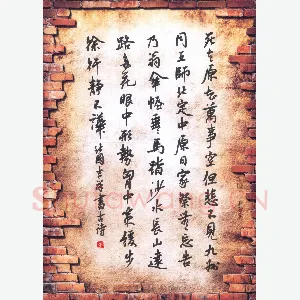 死去原知萬事空但悲不見九州
同王師北定中原日家祭無忘告
乃翁傘幄垂馬踏沙水長山遠
路多花眼中形勢胸中策緩步
徐行靜不譁 書古诗